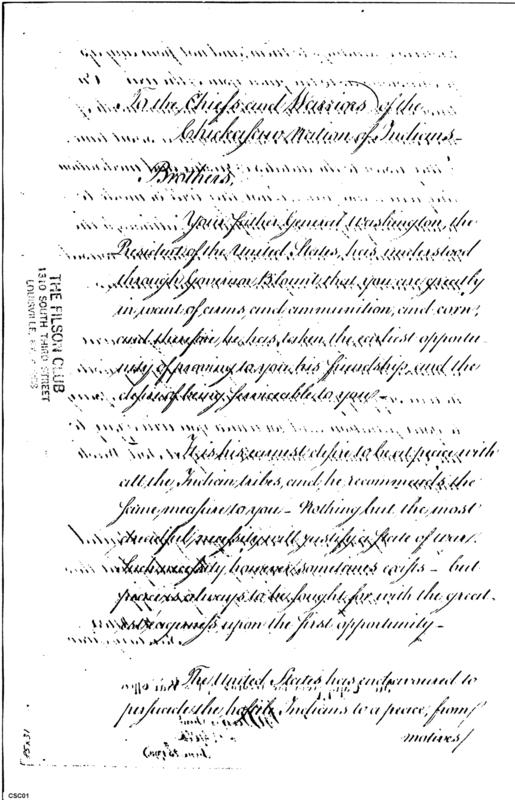 To the Chiefs and Warriors of the
Chickasaw Nation of Indians—
Brothers,
Your father General Washington, the
President of the United States, has understood
through Governor Blount, that you are greatly
in want of arms and ammunition, and corn,
and therefore, he has taken the earliest opportu-
nity of proving to you his friendship, and the
desire of being serviceable to you—
It is his earnest desire to be at peace with
all the Indian tribes, and he recommends the
same measure to you— Nothing but the most
dreadful necessity will justify a state of war.
Such necessity however sometimes exists— but
peace is always to be sought for with the great-
est eagerness upon the first opportunity—
The United States has endeavoured to
persuade the hostile Indians to a peace, from
motives/
THE FILSON CLUB
1310 SOUTH THIRD STREET
LOUISVILLE, KY.
CSC01